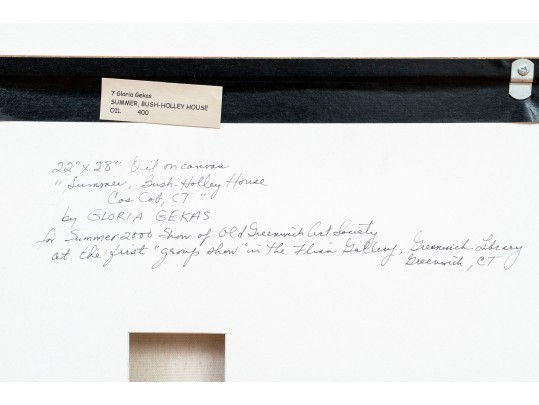 7 Gloria Gekas
SUMMER, BUSH-HOLLEY HOUSE
OIL 400
22" x 28" Oil on canvas
"Summer, Bush-Holley House
Cos Cob, CT"
by GLORIA GEKAS
for Summer 2000 Show of Old Greenwich Art Society
at the first "group show" in the Flinn Gallery, Greenwich Library
Greenwich, CT